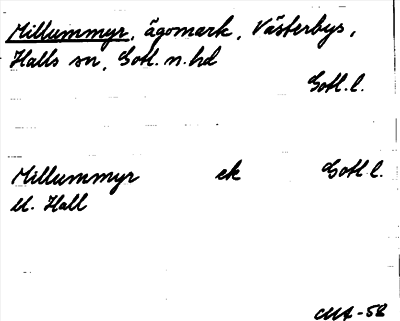 Millummyr, ägomark, Västerbys,
Halls sn, Gotl. n. hd
Gotl. l.
Millummyr ek Gotl. l.
el. Hall
CMA-58